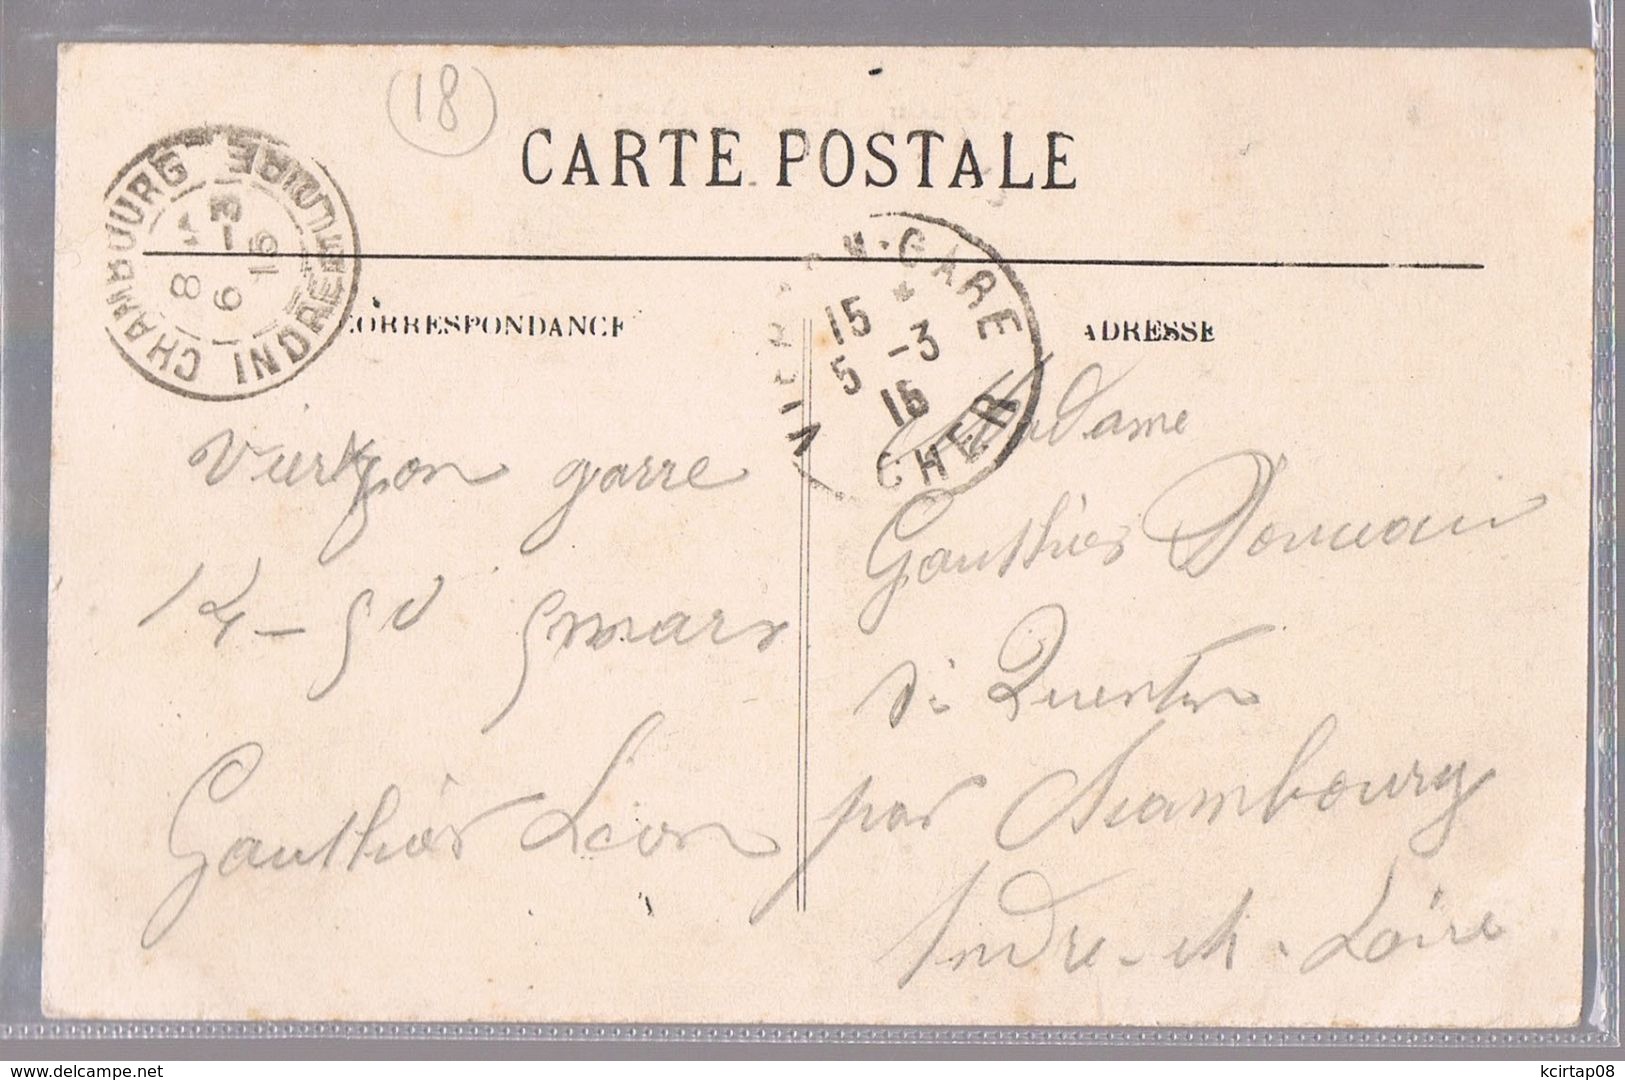 18
CARTE POSTALE
CHAMBOURG
INDRE ET LOIRE
8
6 -3
16
VIERZON-GARE
15 *
5 -3
16
CHER
CORRESPONDANCE
ADRESSE
Vierzon garre
14 - 50 5 mars
Gauthier Léon
Madame
Gauthier
St Quentin
par Chambourg
Indre-et-Loire
kcirtap08